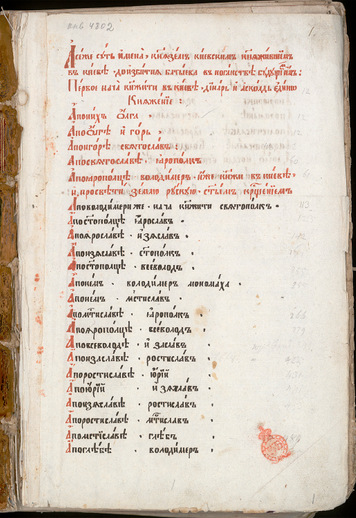 А сѹть имена кнѧземъ киевскимъ
в киевѣ до избитїа батыева в поганствѣ
Первое нача кнѧжити в киевѣ дїиръ и асколдъ едино
Кнѧженїе :
А по нихъ ѡлга
А по ѡлзѣ игорь
А по игорѣ свѧтославъ :
А по свѧтославѣ ꙗрополкъ
А по ꙗрополцѣ володимеръ иже кнѧжи въ киевѣ
и просвѣти землю рускую ст҃ымъ крещенїемъ
А по володимери же нача кнѧжити свѧтополкъ
А по ст҃ополцѣ ꙗрославъ
А по ꙗрославѣ изѧславъ
А по изѧславѣ ст҃ополкъ
А по ст҃ополцѣ всеволодъ
А по нем володимеръ мономаха
А по нем мстиславъ
А по мстиславѣ ꙗрополкъ
А по ꙗрополцѣ всеволодъ
А по всеволодѣ изѧславъ
А по изѧславѣ ростиславъ
А по ростиславѣ юрїи
А по юрїи изѧславъ
А по изѧславѣ ростиславъ
А по ростиславѣ мстиславъ
А по мстиславѣ глѣбъ
А по глѣбѣ володимеръ